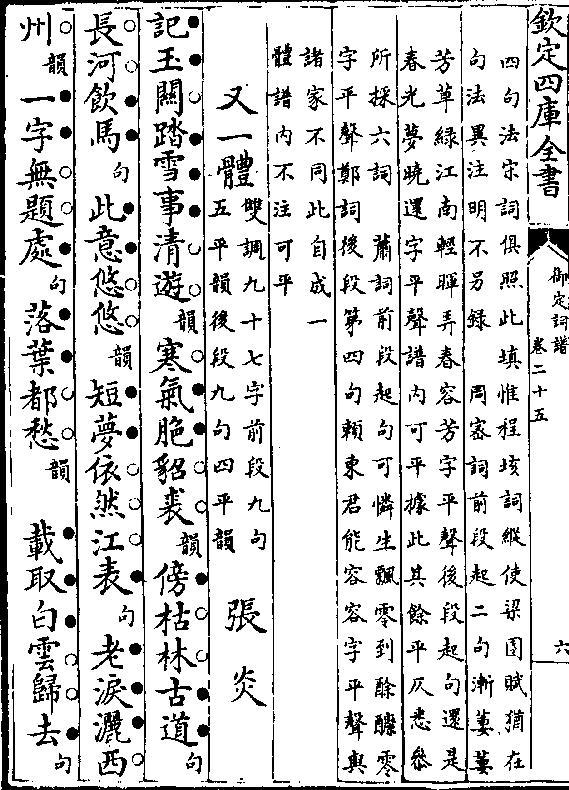 欽定四庫全書
御定詞譜
卷二十五
六
四句法宋詞俱照此填惟程垓詞縱使梁園賦猶在
句法異注明不另錄 周密詞前段起二句漸萋萋
芳草綠江南輕暉弄春容芳字平聲後段起句還是
春光夢曉還字平聲譜内可平據此其餘平仄悉參
所採六詞 蕭詞前段起句可憐生飄零到酴醾零
字平聲鄭詞後段第四句賴東君能容容字平聲與
諸家不同此自成一
體譜内不注可平
又一體 雙調九十七字前段九句
五平韻後段九句四平韻 張炎
記玉闗踏雪事清遊韻寒氣脆貂裘韻傍枯林古道句
長河飲馬句此意悠悠韻短夢依然江表句老淚灑西
州韻一字無題處句落葉都愁韻 載取白雲歸去句